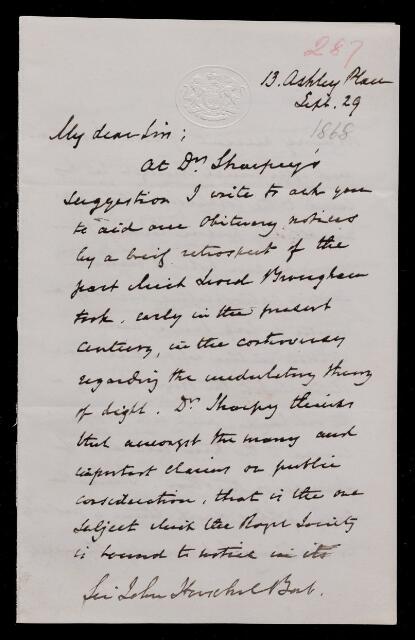 287
13. Ashley Place
Sept. 29
1868
My dear Sir;
At Dr. Sharpey's
suggestion I write to ask you
to aid our Obituary notices
by a brief retrospect of the
part which Lord Brougham
took, early in the present
century, in the controversy
regarding the undulatory theory
of light. Dr. Sharpey thinks
that amongst the many and
important claims on public
consideration, that is the one
subject which the Royal Society
is bound to notice in its
Sir John Herschel Bart.